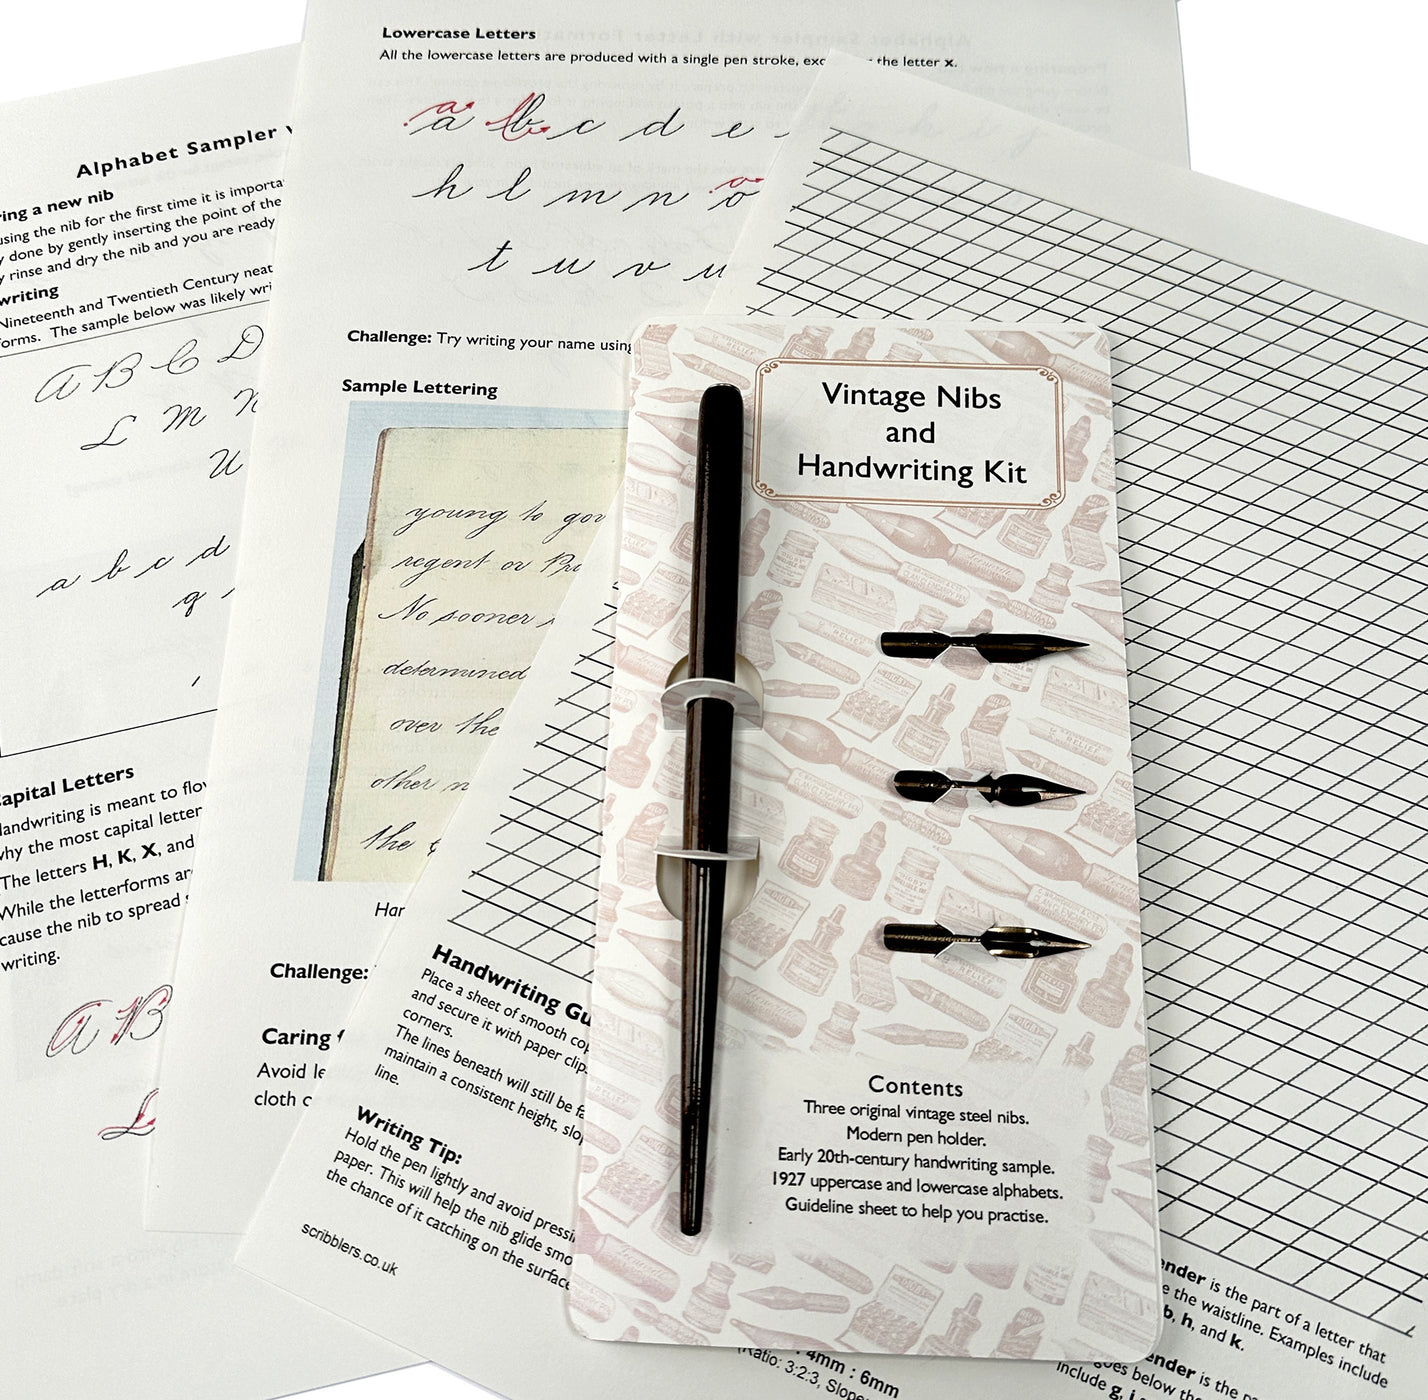 Alphabet Sampler
ing a new nib
using the nib for the first time it is
done by gently inserting the point of the
rinse and dry the nib and you are ready
writing
Nineteenth and Twentieth Century neat
forms. The sample below was likely
A B C D
L M N
U
a b c d
q
Capital Letters
Handwriting is meant to
why the most capital
The letters H, K, X, and
While the letterforms
cause the nib to spread
writing.
A B
L
Lowercase Letters
All the lowercase letters are produced with a single pen stroke, the letter x.
a b c d e
h l m n o
t u v
Challenge: Try writing your name using
Sample Lettering
young to
regent or
No sooner
determined
over the
other
the
Challenge:
Caring
Avoid
cloth
Handwriting
Place a sheet of smooth
and secure it with paper
corners.
The lines beneath will still be
maintain a consistent height,
line.
Writing Tip:
Hold the pen lightly and avoid
paper. This will help the nib glide
the chance of it catching on the surface
scribblers.co.uk
Vintage Nibs
and
Handwriting Kit
Contents
Three original vintage steel nibs.
Modern pen holder.
Early 20th-century handwriting sample.
1927 uppercase and lowercase alphabets.
Guideline sheet to help you practise.
: 4mm : 6mm
(Ratio: 3:2:3,
ender is the part of a letter that
the waistline. Examples include
b, h, and k.
ender is the
goes below the
include g,